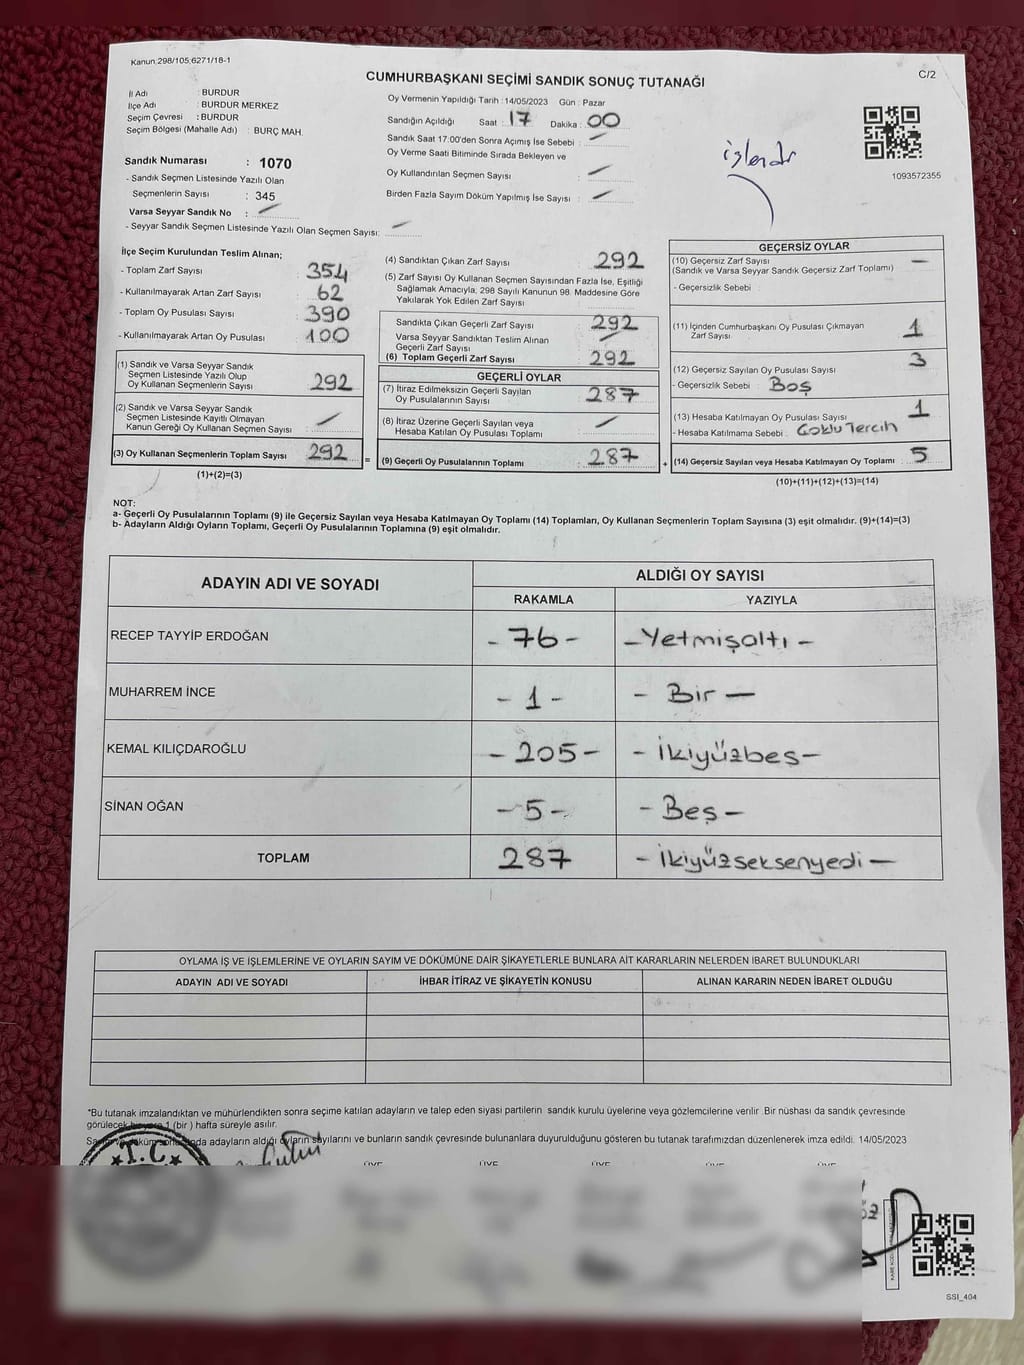 Kanun, 298/105,6271/18-1
C/2
CUMHURBAŞKANI SEÇİMİ SANDIK SONUÇ TUTANAĞI
İl Adı : BURDUR
İlçe Adı : BURDUR MERKEZ
Seçim Çevresi : BURDUR
Seçim Bölgesi (Mahalle Adı) : BURÇ MAH.
Sandık Numarası : 1070
- Sandık Seçmen Listesinde Yazılı Olan
Seçmenlerin Sayısı : 345
Varsa Seyyar Sandık No :
- Seyyar Sandık Seçmen Listesinde Yazılı Olan Seçmen Sayısı:
Oy Vermenin Yapıldığı Tarih : 14/05/2023 Gün : Pazar
Sandığın Açıldığı Saat : 17 Dakika : 00
Sandık Saat 17:00'den Sonra Açımış İse Sebebi :
Oy Verme Saati Bitiminde Sırada Bekleyen ve
Oy Kullandırılan Seçmen Sayısı :
Birden Fazla Sayım Döküm Yapılmış İse Sayısı :
işlendi
1093572355
İlçe Seçim Kurulundan Teslim Alınan;
- Toplam Zarf Sayısı : 354
- Kullanılmayarak Artan Zarf Sayısı : 62
- Toplam Oy Pusulası Sayısı : 390
- Kullanılmayarak Artan Oy Pusulası : 100
(1) Sandık ve Varsa Seyyar Sandık
Seçmen Listesinde Yazılı Olup
Oy Kullanan Seçmenlerin Sayısı : 292
(2) Sandık ve Varsa Seyyar Sandık
Seçmen Listesinde Kayıtlı Olmayan
Kanun Gereği Oy Kullanan Seçmen Sayısı :
(3) Oy Kullanan Seçmenlerin Toplam Sayısı : 292
(1)+(2)=(3)
(4) Sandıktan Çıkan Zarf Sayısı : 292
(5) Zarf Sayısı Oy Kullanan Seçmen Sayısından Fazla İse, Eşitliği
Sağlamak Amacıyla, 298 Sayılı Kanunun 98. Maddesine Göre
Yakılarak Yok Edilen Zarf Sayısı
Sandıkta Çıkan Geçerli Zarf Sayısı : 292
Varsa Seyyar Sandıktan Teslim Alınan
Geçerli Zarf Sayısı :
(6) Toplam Geçerli Zarf Sayısı : 292
GEÇERLİ OYLAR
(7) İtiraz Edilmeksizin Geçerli Sayılan
Oy Pusulalarının Sayısı : 287
(8) İtiraz Üzerine Geçerli Sayılan veya
Hesaba Katılan Oy Pusulası Toplamı :
= (9) Geçerli Oy Pusulalarının Toplamı : 287
GEÇERSİZ OYLAR
(10) Geçersiz Zarf Sayısı : —
(Sandık ve Varsa Seyyar Sandık Geçersiz Zarf Toplamı)
- Geçersizlik Sebebi :
(11) İçinden Cumhurbaşkanı Oy Pusulası Çıkmayan
Zarf Sayısı : 1
(12) Geçersiz Sayılan Oy Pusulası Sayısı : 3
- Geçersizlik Sebebi : Boş
(13) Hesaba Katılmayan Oy Pusulası Sayısı : 1
- Hesaba Katılmama Sebebi : Çoklu Tercih
+ (14) Geçersiz Sayılan veya Hesaba Katılmayan Oy Toplamı : 5
(10)+(11)+(12)+(13)=(14)
NOT:
a- Geçerli Oy Pusulalarının Toplamı (9) ile Geçersiz Sayılan veya Hesaba Katılmayan Oy Toplamı (14) Toplamları, Oy Kullanan Seçmenlerin Toplam Sayısına (3) eşit olmalıdır. (9)+(14)=(3)
b- Adayların Aldığı Oyların Toplamı, Geçerli Oy Pusulalarının Toplamına (9) eşit olmalıdır.
ADAYIN ADI VE SOYADI
ALDIĞI OY SAYISI
RAKAMLA YAZIYLA
RECEP TAYYİP ERDOĞAN - 76 - - Yetmişaltı -
MUHARREM İNCE - 1 - - Bir -
KEMAL KILIÇDAROĞLU - 205 - - İkiyüzbeş -
SİNAN OĞAN - 5 - - Beş -
TOPLAM 287 - İkiyüzseksenyedi -
OYLAMA İŞ VE İŞLEMLERİNE VE OYLARIN SAYIM VE DÖKÜMÜNE DAİR ŞİKAYETLERLE BUNLARA AİT KARARLARIN NELERDEN İBARET BULUNDUKLARI
ADAYIN ADI VE SOYADI İHBAR İTİRAZ VE ŞİKAYETİN KONUSU ALINAN KARARIN NEDEN İBARET OLDUĞU
*Bu tutanak imzalandıktan ve mühürlendikten sonra seçime katılan adayların ve talep eden siyasi partilerin sandık kurulu üyelerine veya gözlemcilerine verilir. Bir nüshası da sandık çevresinde
görülecek bir yere 1 (bir) hafta süreyle asılır.
adayların aldığı oyların sayılarını ve bunların sandık çevresinde bulunanlara duyurulduğunu gösteren bu tutanak tarafımızdan düzenlenerek imza edildi. 14/05/2023
T.C.
ÜYE ÜYE ÜYE ÜYE ÜYE
SSI_404